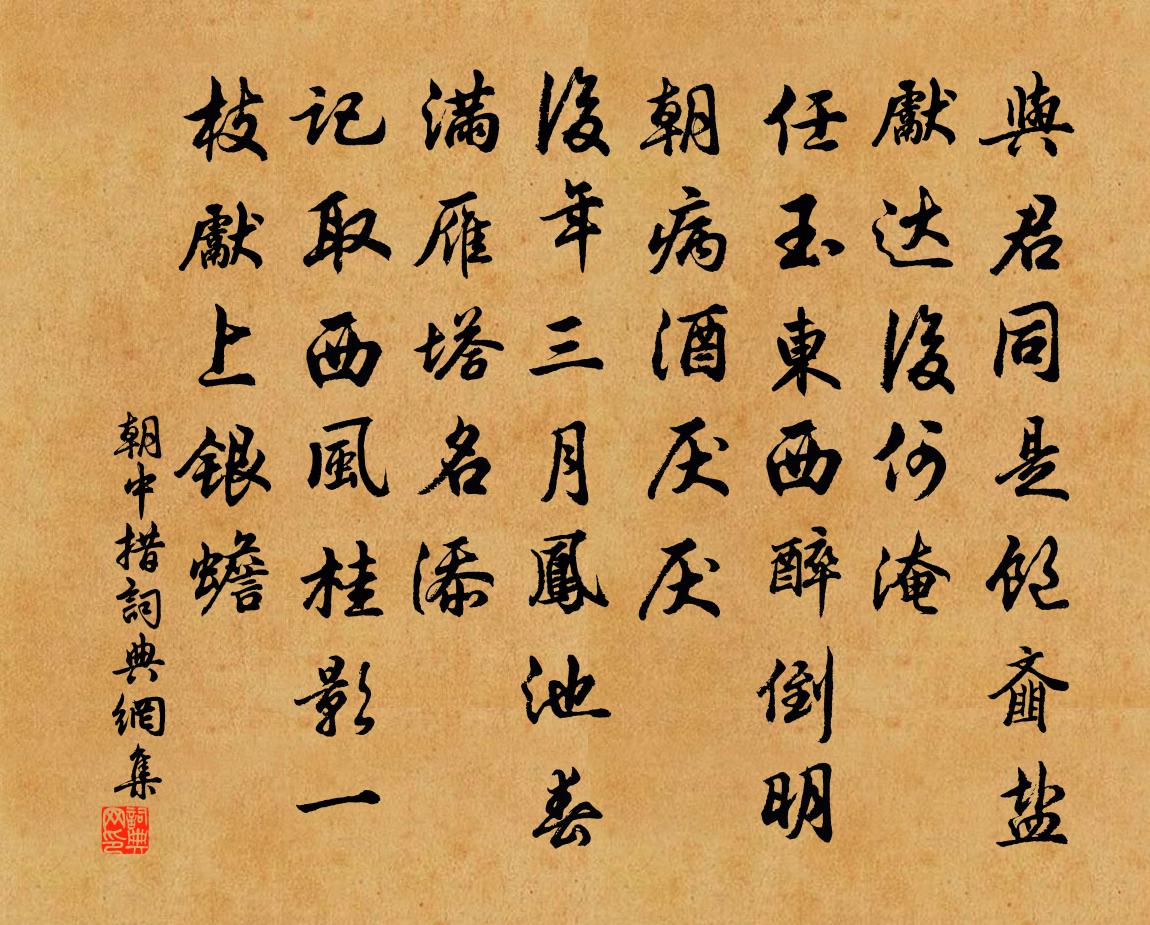 與君同是飽齑盐
獻达後何淹
任玉東西醉倒明
朝病酒厌厌
後年三月鳳池春
滿雁塔名添
记取西風桂影一
枝獻上銀蟾
朝中措詞典網集
詞典网印